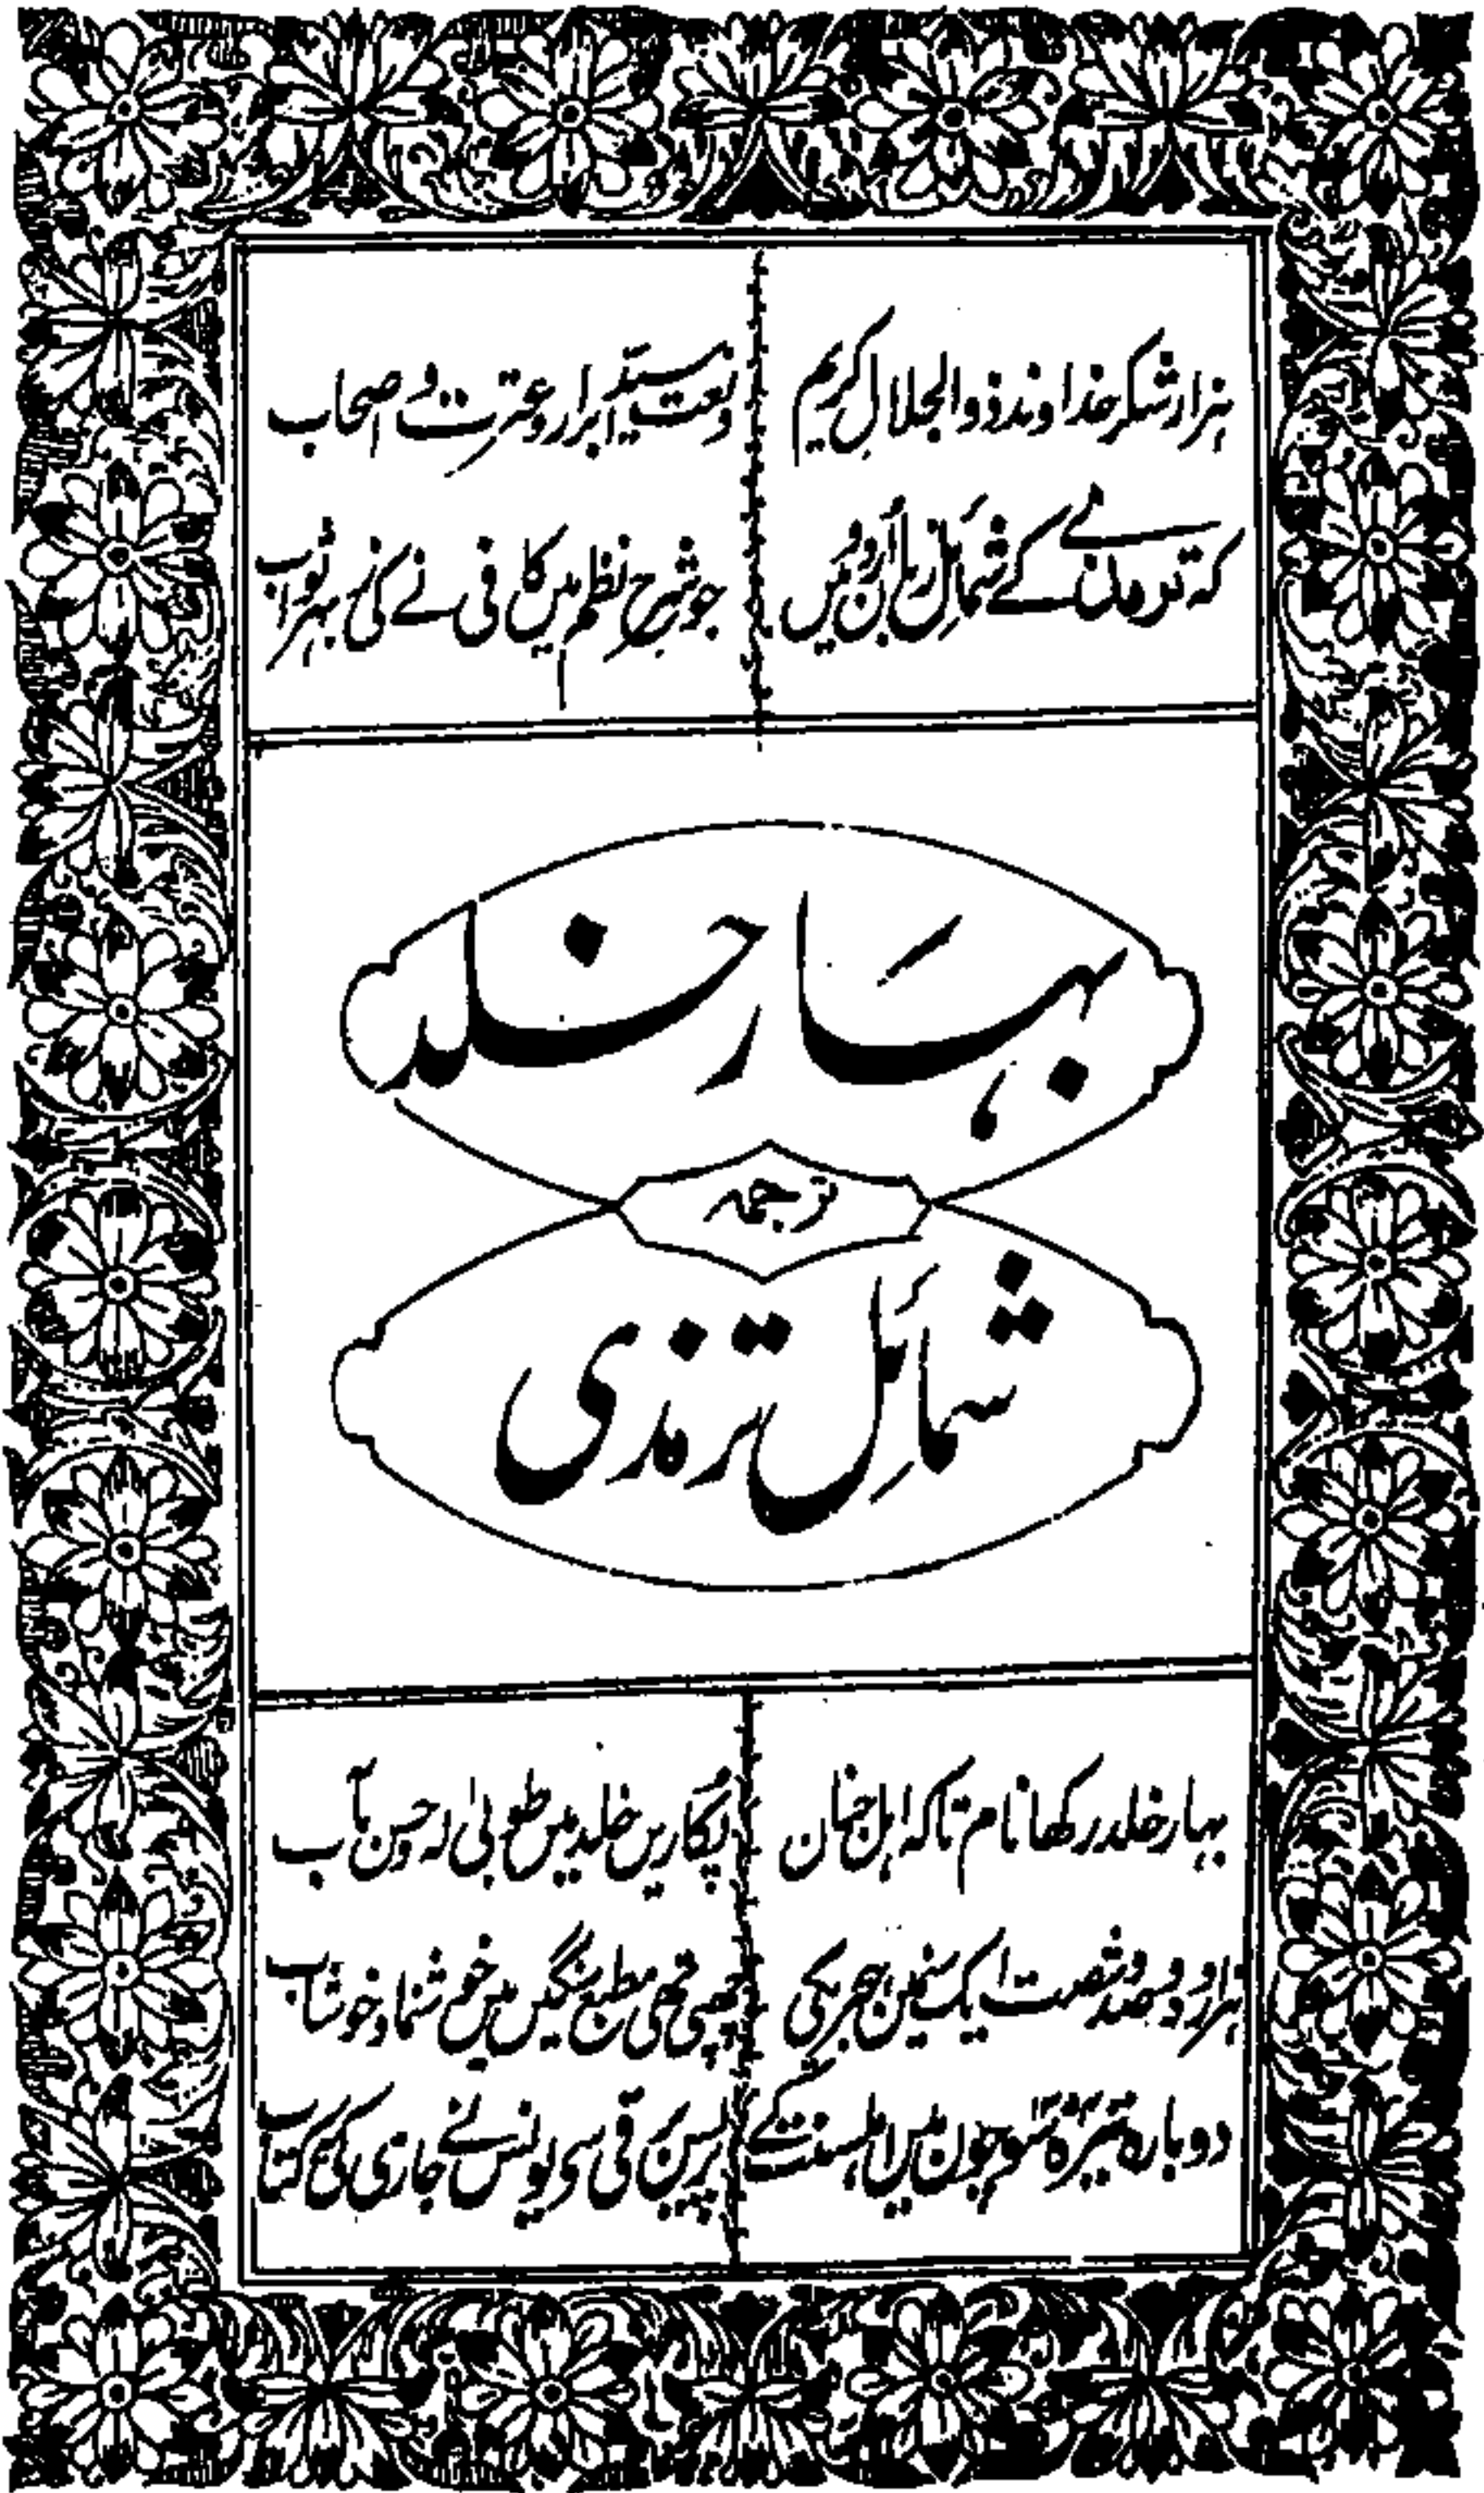 ہزار شکر خداوند ذو الجلال کریم
ونعت سید ابرار و عترت و اصحاب
کہ ترمذی کے شمائل زبان اردو میں
جو شرح نظم میں کافی نے کی بہر ثواب
بہار خلد
ترجمہ
شمائل ترمذی
بہار خلد رکھا نام تاکہ اہل جنان
پکاریں خلد میں طوبیٰ لہ وحسن مآب
ہزار و دوصد و شصت ایک سنین ہجری کی
چھپی تھی مطبع سنگیں میں خوشنما و خوشاب
دوبارہ تیرہ سو چون میں اہلسنت کے
پریس قی سی یونس نے جاری کی کتاب